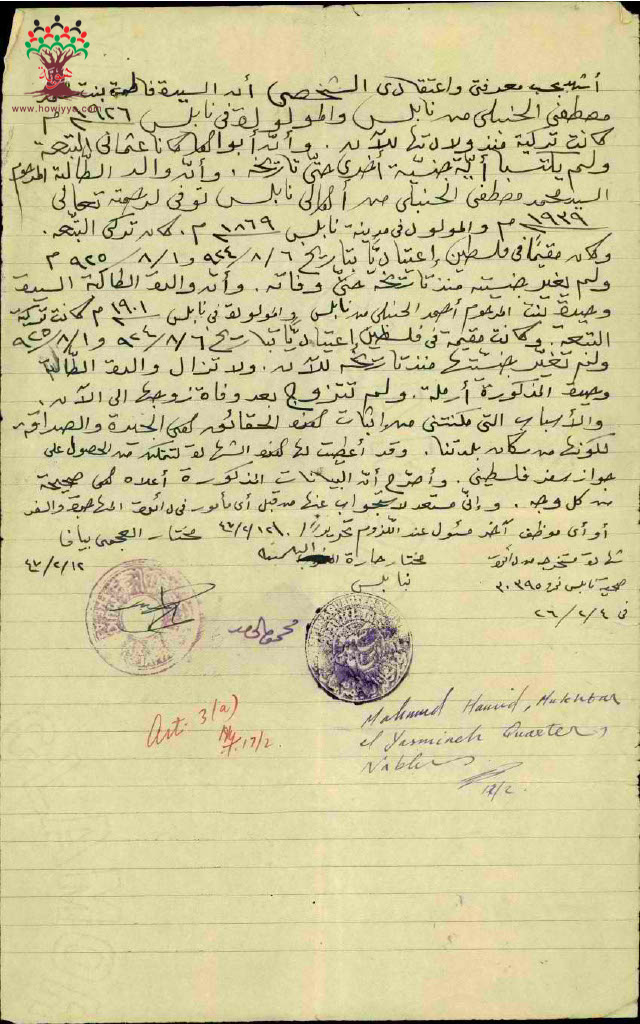 www.howiyya.com
أشهد بحسب معرفتي واعتقادي الشخصي أن السيدة فاطمة بنت محمد
مصطفى الحنبلي من نابلس والمولودة في نابلس ١٩٢٦ م
كانت تركية منذ ولادتها للآن . وأنّ أبواها كانا عثماني التبعة
ولم يكتسبا أيّة جنسيّة أخرى حتّى تاريخه . وأنّ والد الطّالبة المرحوم
السيد محمد مصطفى الحنبلي من أهالي نابلس توفى لرحمته تعالى
١٩٣٩ م والمولود في مدينة نابلس ١٨٦٩ م . كان تركي التبعه .
وكان مقيمًا في فلسطين إعتياديًّا بتاريخ ٩٢٤/٨/٦ و ٩٢٥/٨/١ م
ولم يغيّر جنسيته منذ تاريخه حتّى وفاته . وأنّ والدة الطالبة السيدة
وصيفة بنت المرحوم أحمد الحنبلي من نابلس والمولودة في نابلس ١٩٠١ م كانت تركية
التبعة . وكانت مقيمة في فلسطين إعتياديًّا بتاريخ ٩٢٤/٨/٦ و ٩٢٥/٨/١
ولم تغيّر جنسيّتها منذ تاريخه للآن . ولا تزال والدة الطّالبة
وصيفة المذكورة أرملة . ولم تتزوج بعد وفاة زوجها الى الآن .
والأسباب التي مكنتني من إثبات هذه الحقائق هي الجيرة والصداقة
لكونها من سكان بلدتنا . وقد أعطيت لها هذه الشهادة لتتمكن من الحصول على
جواز سفر فلسطيني . وأصرّح أنّ البيانات المذكورة أعلاه هي صحيحة
من كل وجه . وإنّي مستعد للإستجواب عنها من قبل أي مأمور في دائرة المهاجرة والسفر
أو أي موظف آخر مسئول عند اللّزوم تحريرًا / ٤٧/٢/١٢
مختار العجمي بيافا
٤٧/٢/١٢
مختار حارة الياسمينه
نابلس
شهادة مستخرجه من دائرة
صحية نابلس نمرة ٣٠٣٩٥
في ٢٦/٢/٤
Art. 3(a)
17/2.
Mahmud Hamid, Mukhtar
el Yasmineh Quarter,
Nablus